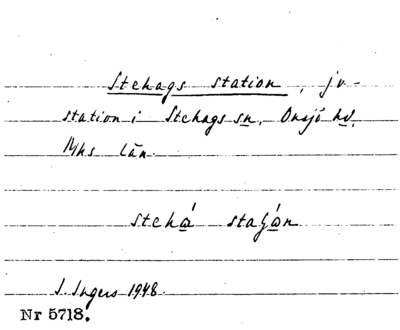 Stehags station, jv-
station i Stehags sn, Onsjö hd,
Mhs län.
stehá̱ staʃó̱n
I. Ingers 1948.
Nr 5718.